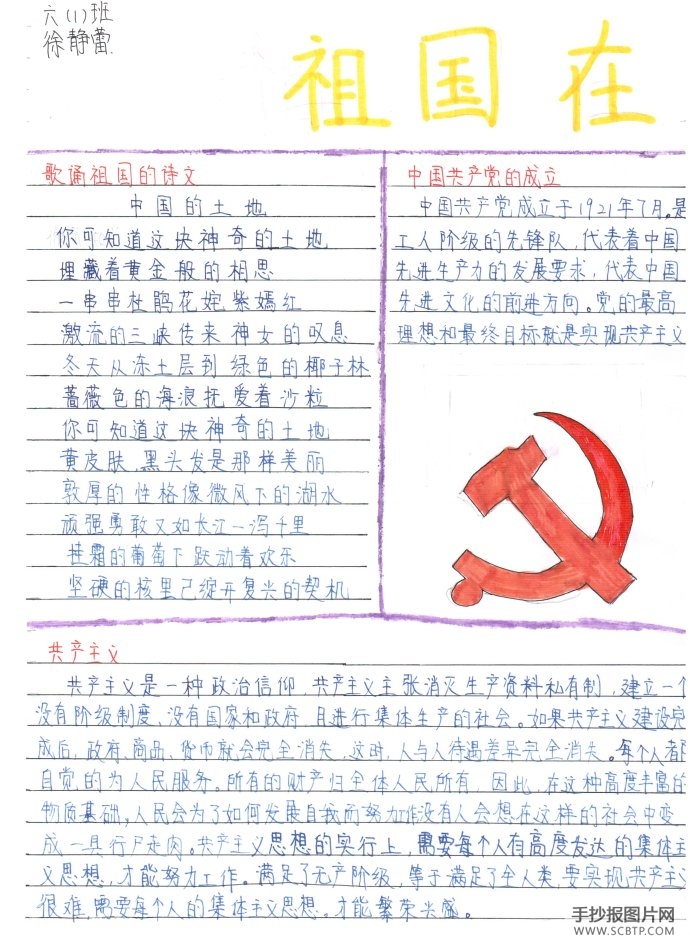 六(1)班
徐静蕾
祖国在
歌诵祖国的诗文
中国的土地
你可知道这块神奇的土地
埋藏着黄金般的相思
一串串杜鹃花姹紫嫣红
激流的三峡传来神女的叹息
冬天从冻土层到绿色的椰子林
蔷薇色的海浪抚爱着沙粒
你可知道这块神奇的土地
黄皮肤,黑头发是那样美丽
敦厚的性格像微风下的湖水
顽强勇敢又如长江一泻千里
挂霜的葡萄下跃动着欢乐
坚硬的核里已绽开复兴的契机
中国共产党的成立
中国共产党成立于1921年7月。是
工人阶级的先锋队,代表着中国
先进生产力的发展要求,代表中国
先进文化的前进方向。党的最高
理想和最终目标就是实现共产主义
共产主义
共产主义是一种政治信仰,共产主义主张消灭生产资料私有制,建立一个
没有阶级制度、没有国家和政府,且进行集体生产的社会。如果共产主义建设完
成后,政府、商品、货币就会完全消失,这时,人与人待遇差异完全消失。每个人都
自党的为人民服务。所有的财产归全体人民所有,因此,在这种高度丰富的
物质基础,人民会为了如何发展自我而努力工作没有人会想在这样的社会中变
成一具行尸走肉。共产主义思想的实行上,需要每个人有高度发达的集体主
义思想,才能努力工作。满足了无产阶级,等于满足了全人类,要实现共产主义
很难,需要每个人的集体主义思想。才能繁荣兴盛。
手抄报图片网
WWW.SCBTP.COM